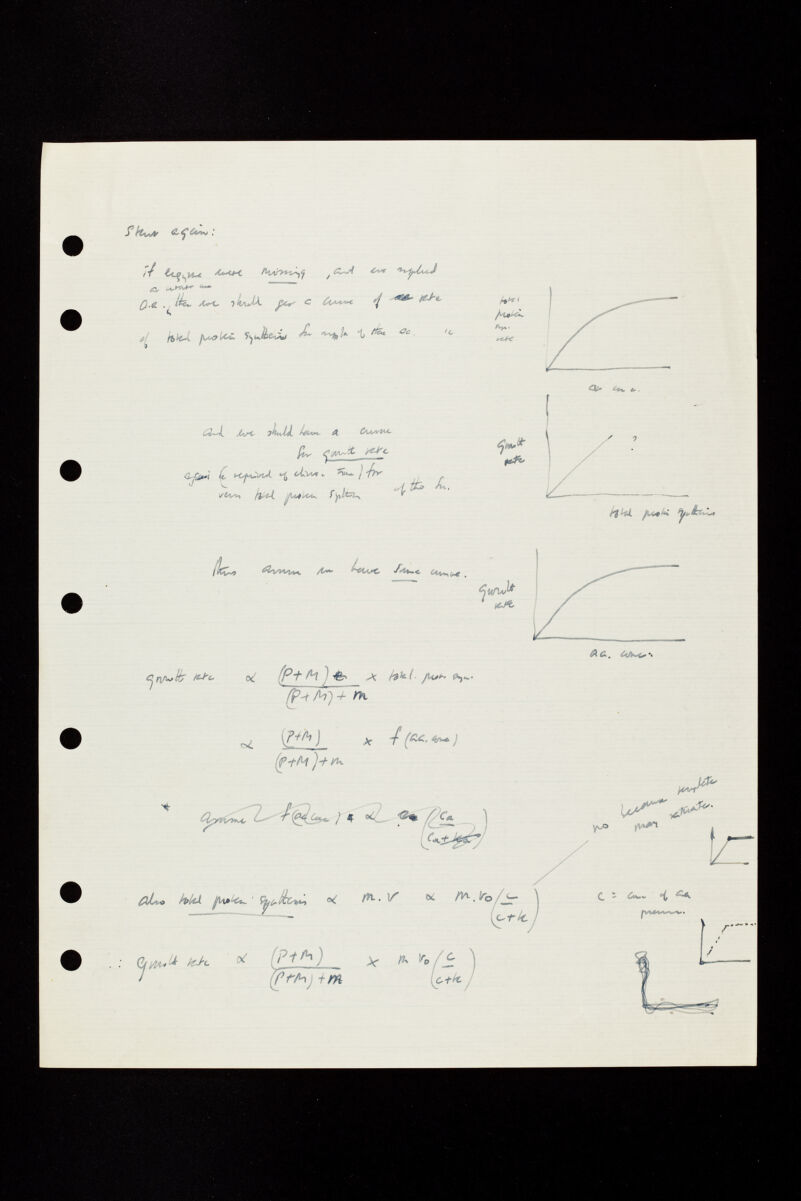 Start again:
if enzyme were missing, and we supplied
a.a., then we should get a curve of rate
of total protein synthesis for supply of the aa. ie
total
protein
syn.
rate
aa conc.
and we should have a curve
for growth rate
again (required of) for
total protein of the
Growth
rate
?
total protein synthesis
thus assume we have same curve.
Growth
rate
aa. conc.
growth rate ∝ (P+M) / (P+M)+m × total. prot syn.
∝ (P+M) / (P+M)+m × f (aa. conc)
* assume f(aa conc) ∝ (ca / ca+ka)
no because template
may saturate.
also total protein synthesis ∝ m.v ∝ m.vo (c / c+k)
c = conc of aa
∴ Growth rate ∝ (P+M) / (P+M)+m × m vo (c / c+k)